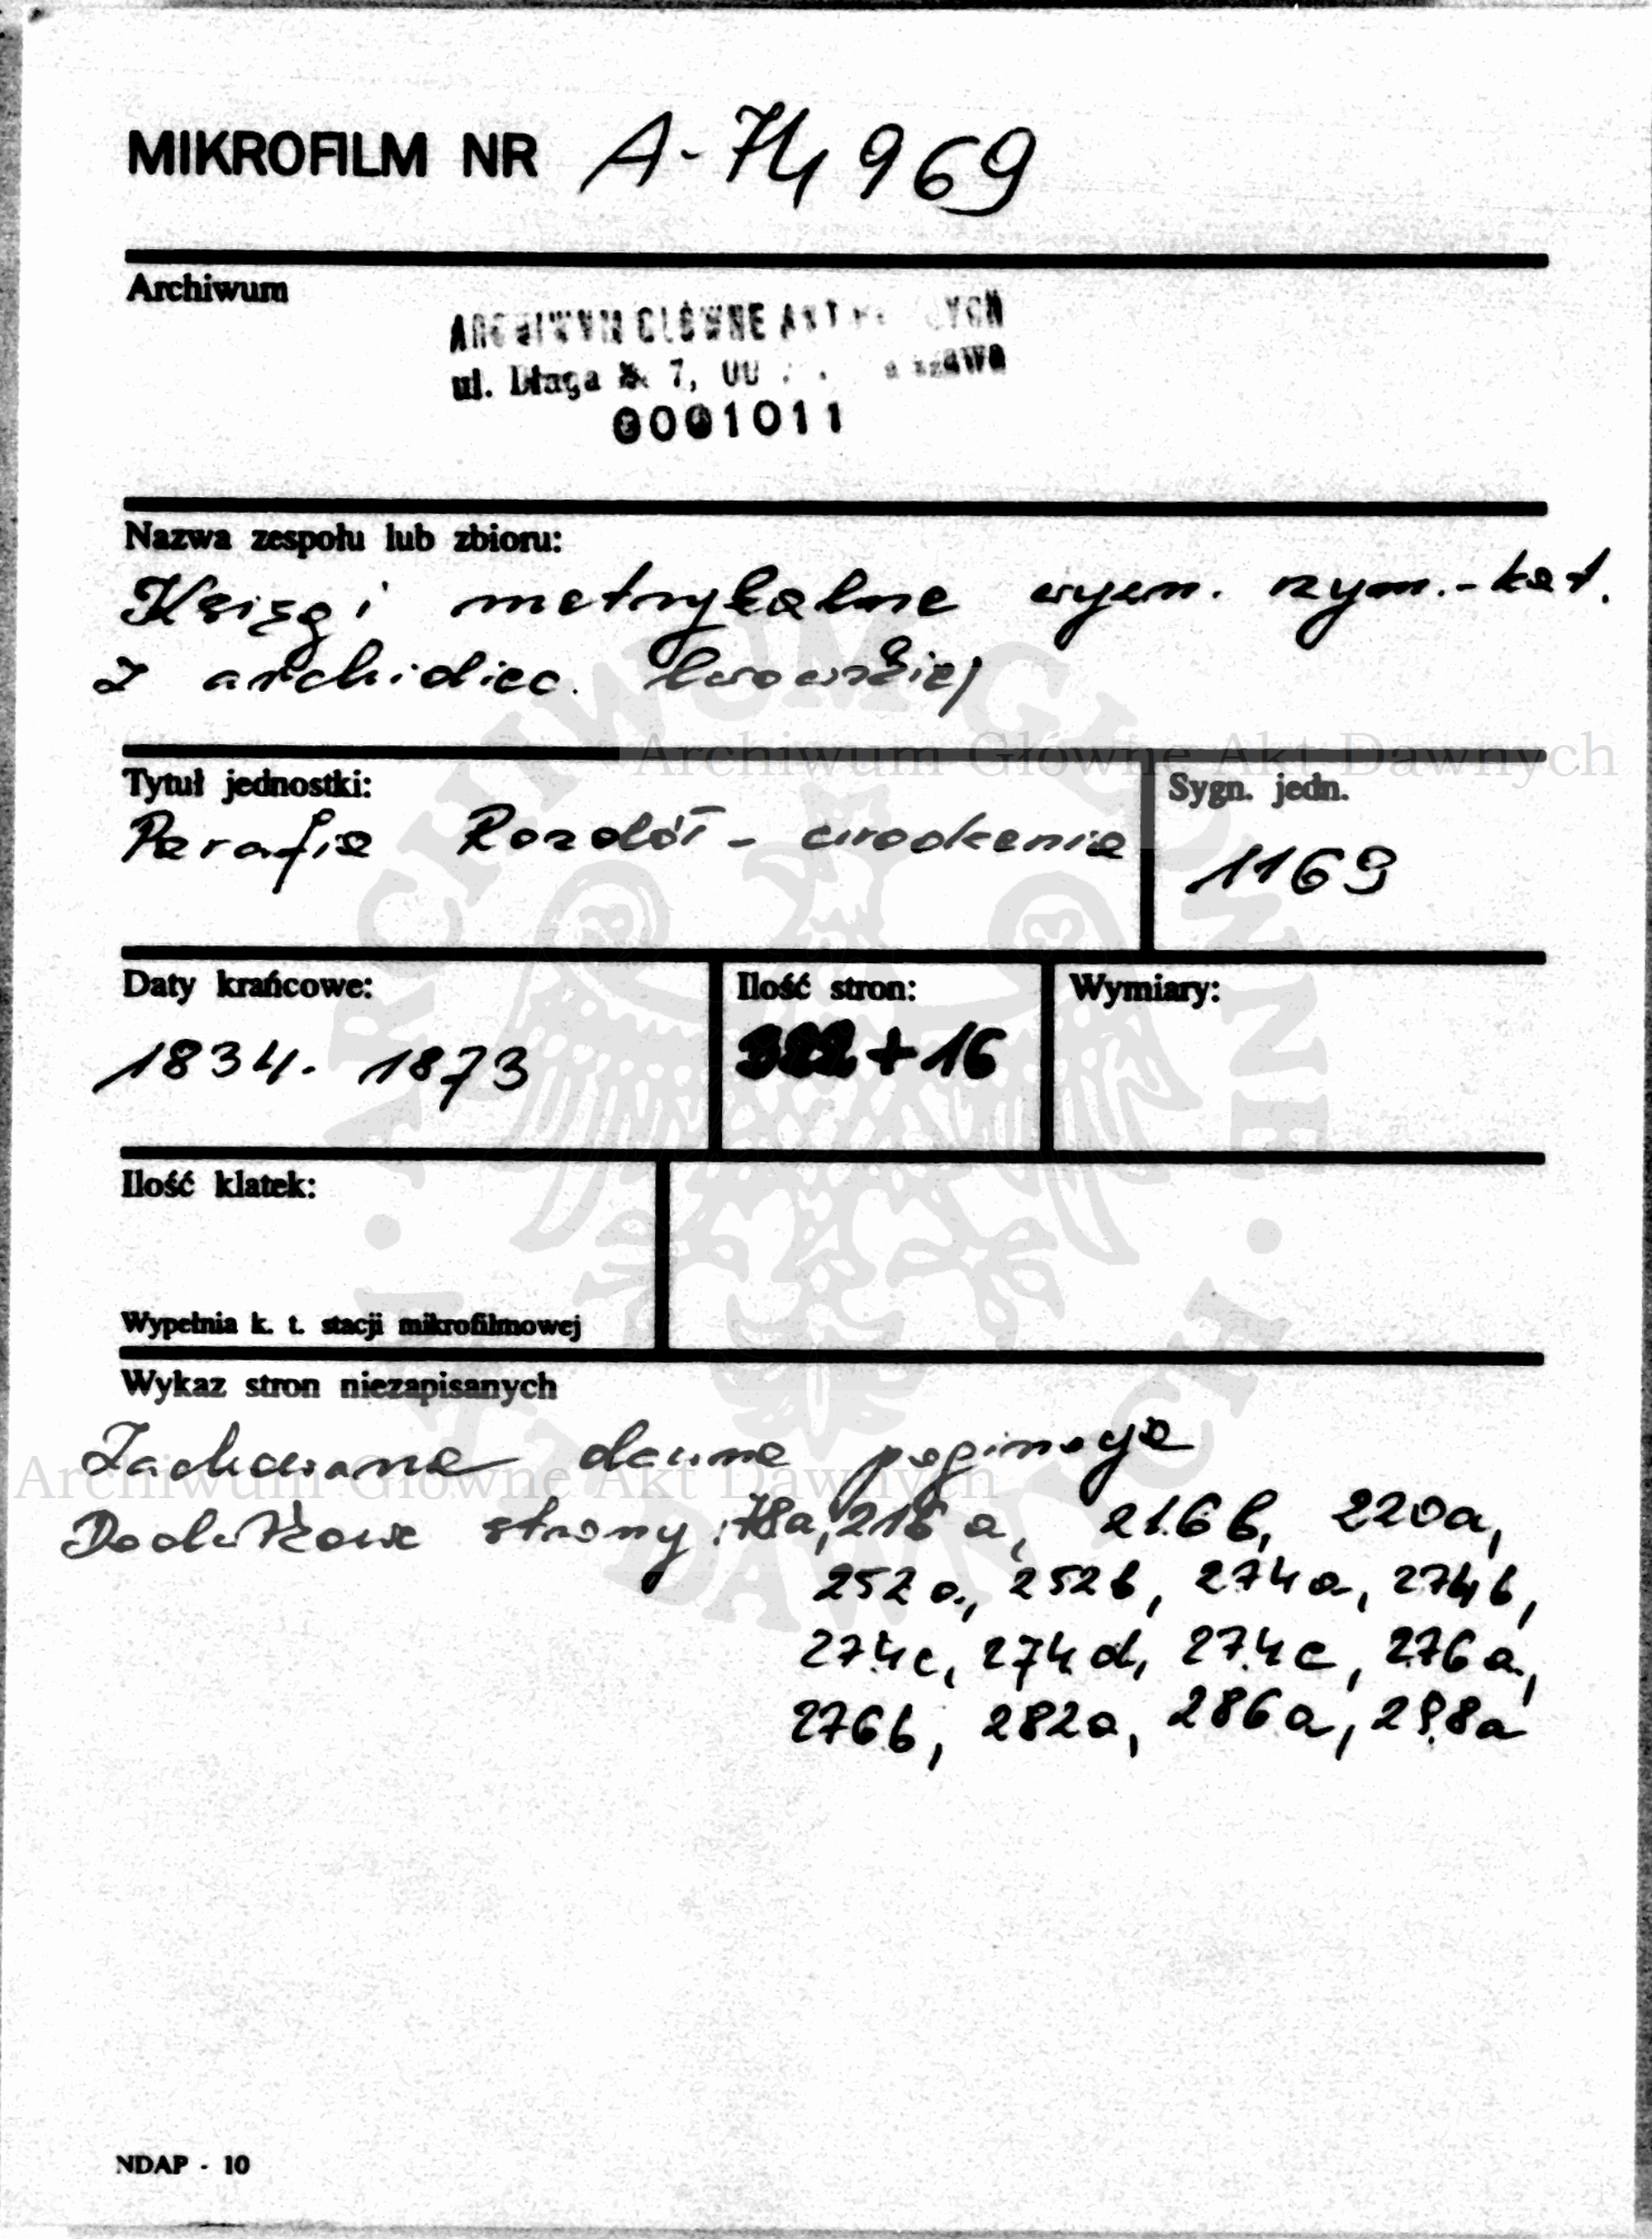 MIKROFILM NR A-74969
Archiwum
ARCHIWUM GŁÓWNE AKT
ul. Długa 7, 00
0001011
Nazwa zespołu lub zbioru:
Księgi metrykalne wyzn. rzym.-kat.
z archidiec. lwowskiej
Archiwum Główne Akt Dawnych
Tytuł jednostki:
Sygn. jedn.
Parafia Rozdół - urodzenia
1169
Daty krańcowe:
Ilość stron:
Wymiary:
1834-1873
+16
Ilość klatek:
Wypełnia k. t. stacji mikrofilmowej
Wykaz stron niezapisanych
Zachowana dawna paginacja
Archiwum Główne Akt Dawnych
Dodatkowe strony: 78a, 216a, 216b, 220a,
252a, 252b, 274a, 274b,
274c, 274d, 274e, 276a,
276b, 282a, 286a, 298a
NDAP - 10
ARCHIWUM GŁÓWNE AKT DAWNYCH